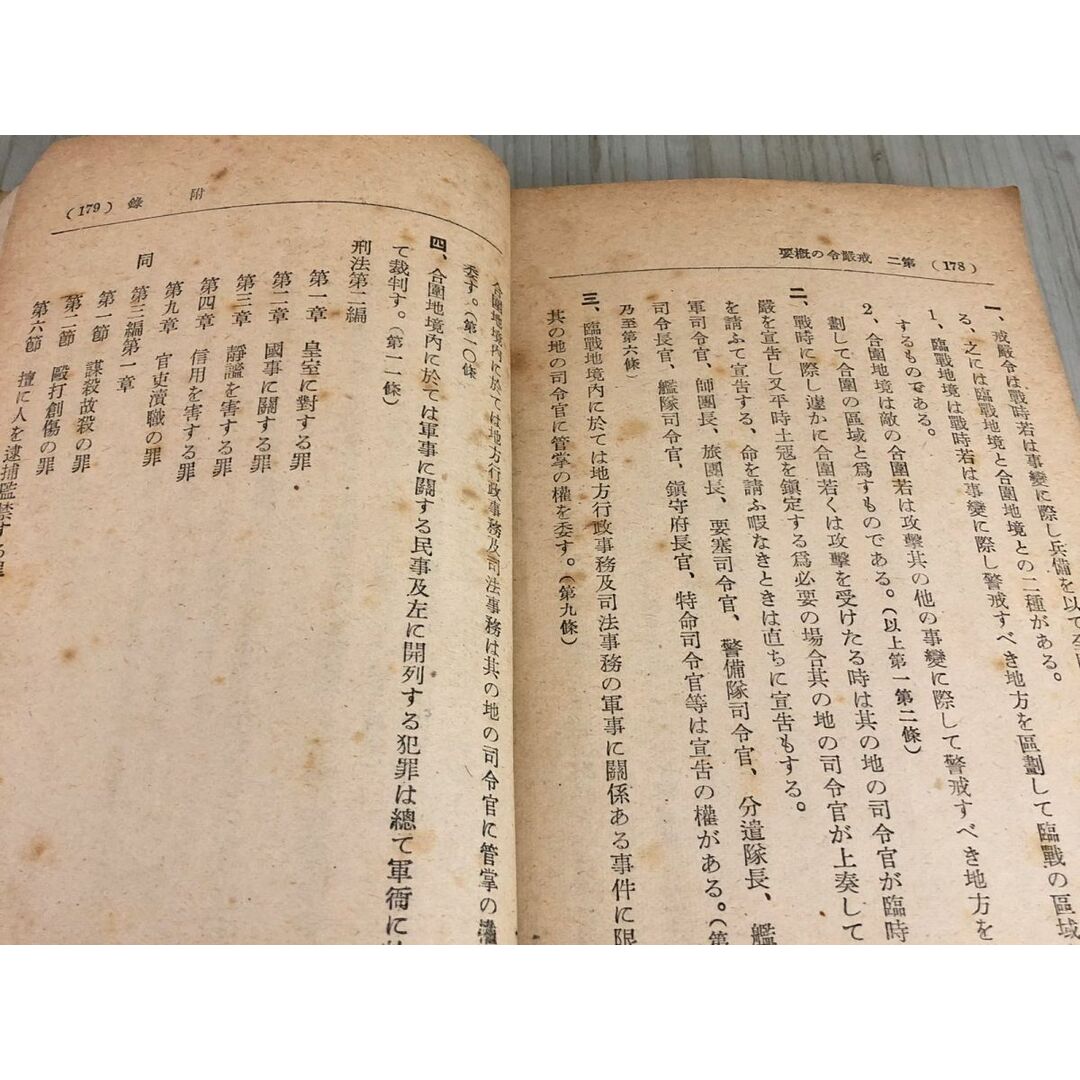 (178) 第二 戒嚴令の概要
一、戒嚴令は戰時若は事變に際し兵備を以て
る、之には臨戰地境と合圍地境との二種がある。
1、臨戰地境は戰時若は事變に際し警戒すべき地方を區劃して臨戰の區域
するものである。
2、合圍地境は敵の合圍若は攻擊其の他の事變に際して警戒すべき地方を
劃して合圍の區域と爲すものである。(以上第一第二條)
二、戰時に際し遽かに合圍若くは攻擊を受けたる時は其の地の司令官が臨時
嚴を宣告し又平時土冠を鎭定する爲必要の場合其の地の司令官が上奏して
を請ふて宣告する、命を請ふ暇なきときは直ちに宣告もする。
軍司令官、師團長、旅團長、要塞司令官、警備隊司令官、分遣隊長、艦
司令長官、艦隊司令官、鎭守府長官、特命司令官等は宣告の權がある。(第
乃至第六條)
三、臨戰地境內に於ては地方行政事務及司法事務の軍事に關係ある事件に限
其の地の司令官に管掌の權を委す。(第九條)
附錄 (179)
合圍地境內に於ては地方行政事務及司法事務は其の地の司令官に管掌の
委す。(第一〇條
四、合圍地境內に於ては軍事に關する民事及左に開列する犯罪は總て軍衙に
て裁判す。(第一一條)
刑法第二編
第一章 皇室に對する罪
第二章 國事に關する罪
第三章 靜謐を害する罪
第四章 信用を害する罪
第九章 官吏瀆職の罪
同 第三編第一章
第一節 謀殺故殺の罪
第二節 毆打創傷の罪
第六節 擅に人を逮捕監禁する罪